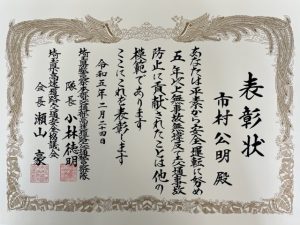 表彰状
市村公明 殿
あなたは平素から安全運転に努め
五年以上無事故無違反で交通事故
防止に貢献されたことは他の
模範であります
ここにこれを表彰します
令和五年二月二十四日
埼玉県警察本部交通部高速道路交通警察隊
隊長 小林徳明
埼玉県高速道路交通安全協議会
会長 瀬山 豪